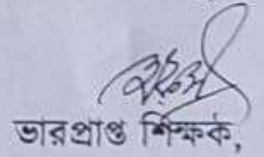 ভারপ্রাপ্ত শিক্ষক,